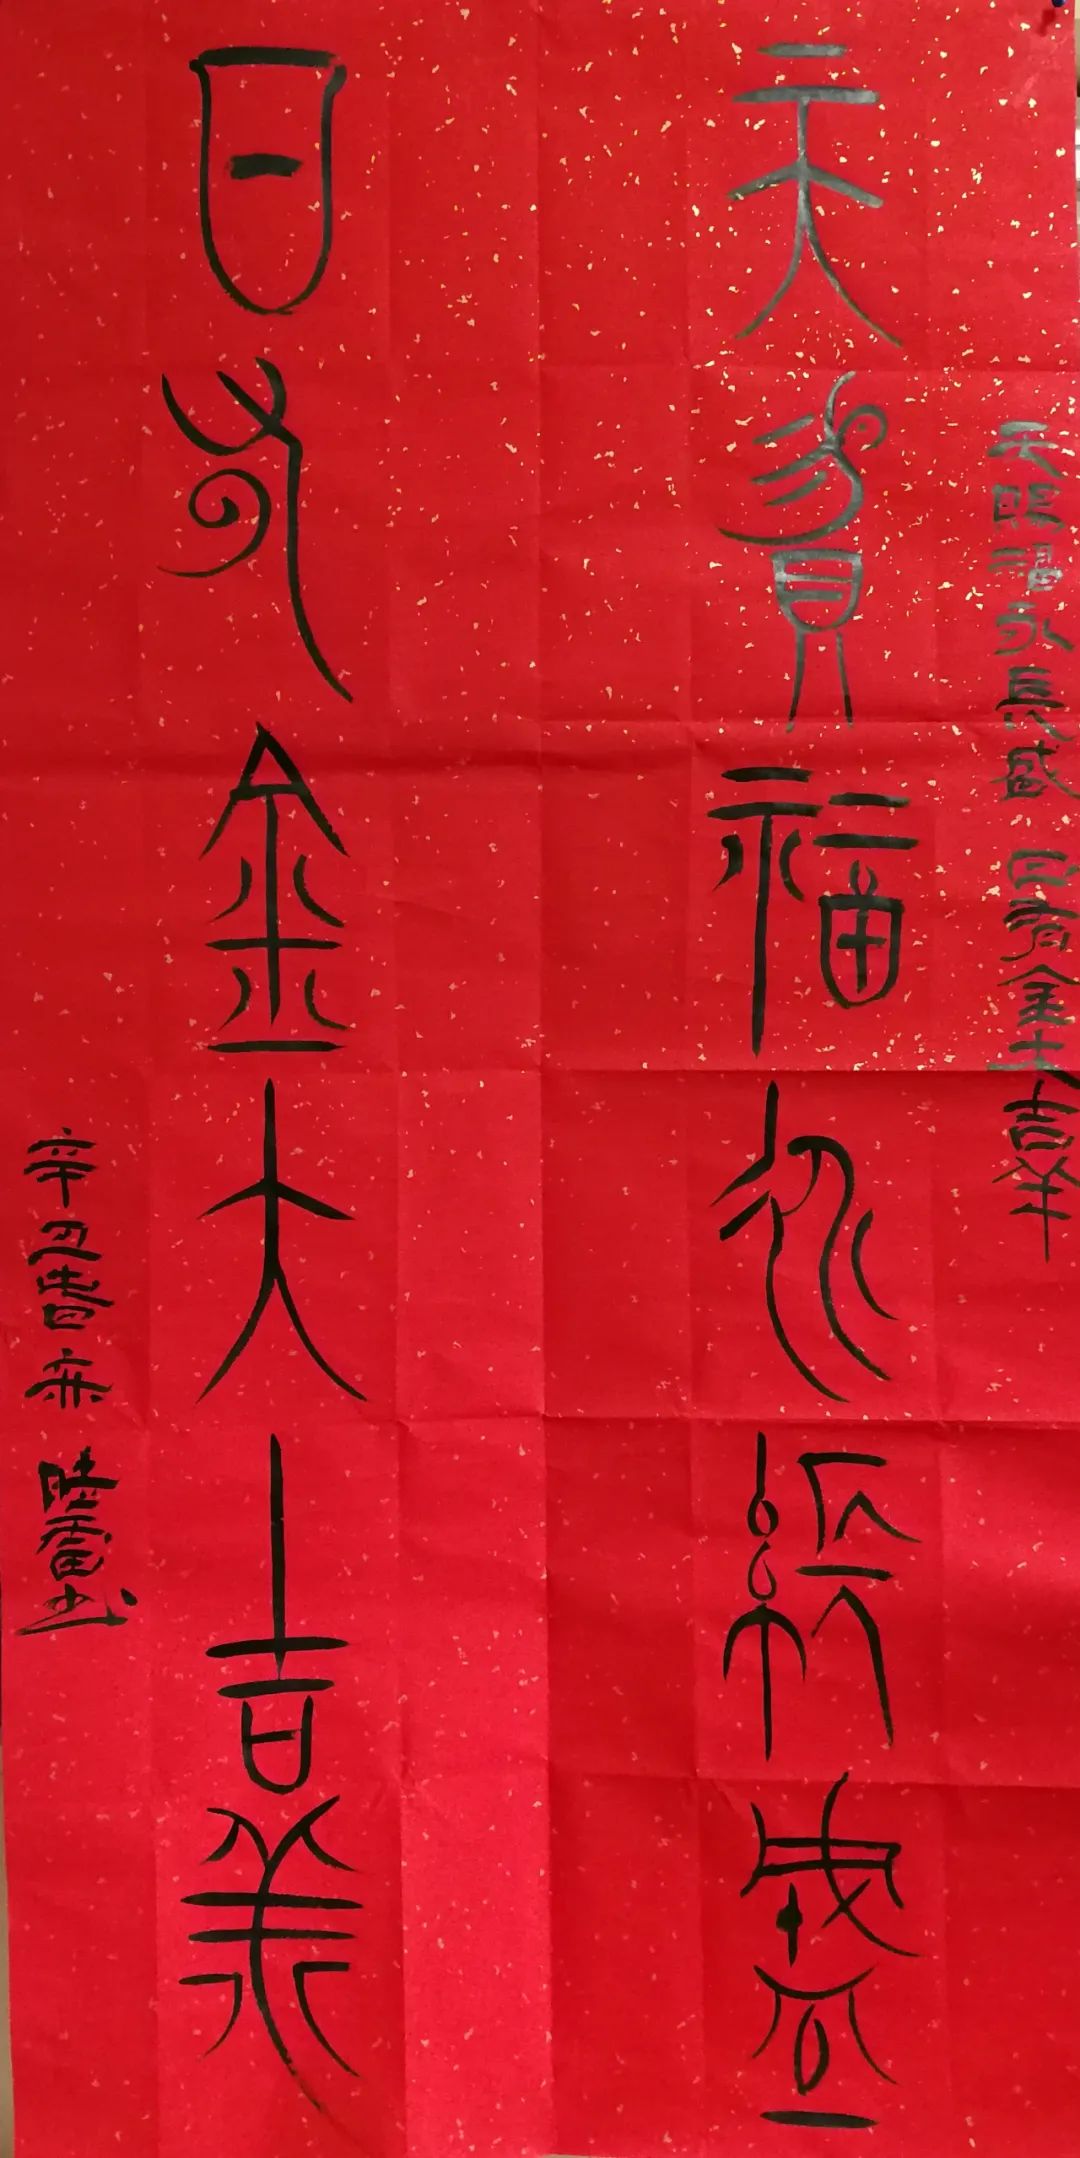 天賜福永長盛 日有金大吉羊
天賜福永盛
日有金大吉
辛丑春